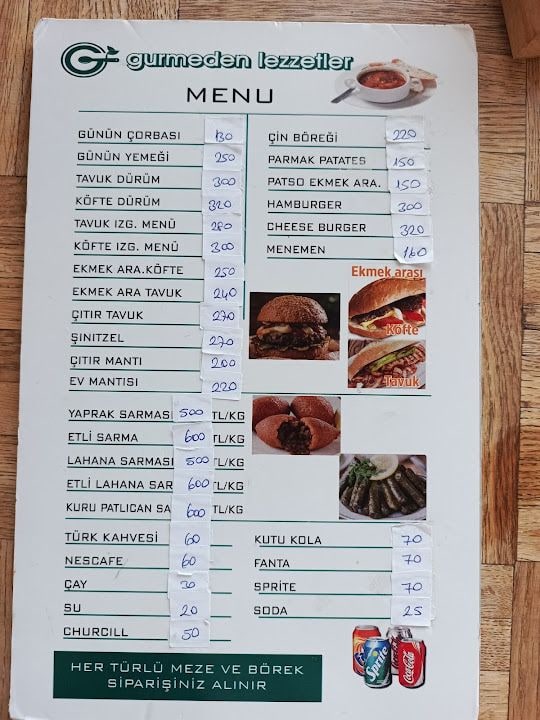 gurmeden lezzetler
MENU
GÜNÜN ÇORBASI 130
GÜNÜN YEMEĞİ 250
TAVUK DÜRÜM 300
KÖFTE DÜRÜM 320
TAVUK IZG. MENÜ 280
KÖFTE IZG. MENÜ 300
EKMEK ARA.KÖFTE 250
EKMEK ARA TAVUK 240
ÇITIR TAVUK 270
ŞINITZEL 270
ÇITIR MANTI 200
EV MANTISI 220
ÇİN BÖREĞİ 220
PARMAK PATATES 150
PATSO EKMEK ARA. 150
HAMBURGER 300
CHEESE BURGER 320
MENEMEN 160
Ekmek arası
Köfte
Tavuk
YAPRAK SARMASI 500 TL/KG
ETLİ SARMA 600 TL/KG
LAHANA SARMASI 500 TL/KG
ETLİ LAHANA SAR 600 TL/KG
KURU PATLICAN SA 600 TL/KG
TÜRK KAHVESİ 60
NESCAFE 60
ÇAY 30
SU 20
CHURCILL 50
KUTU KOLA 70
FANTA 70
SPRİTE 70
SODA 25
Sprite
Coca-Cola
HER TÜRLÜ MEZE VE BÖREK
SİPARİŞİNİZ ALINIR